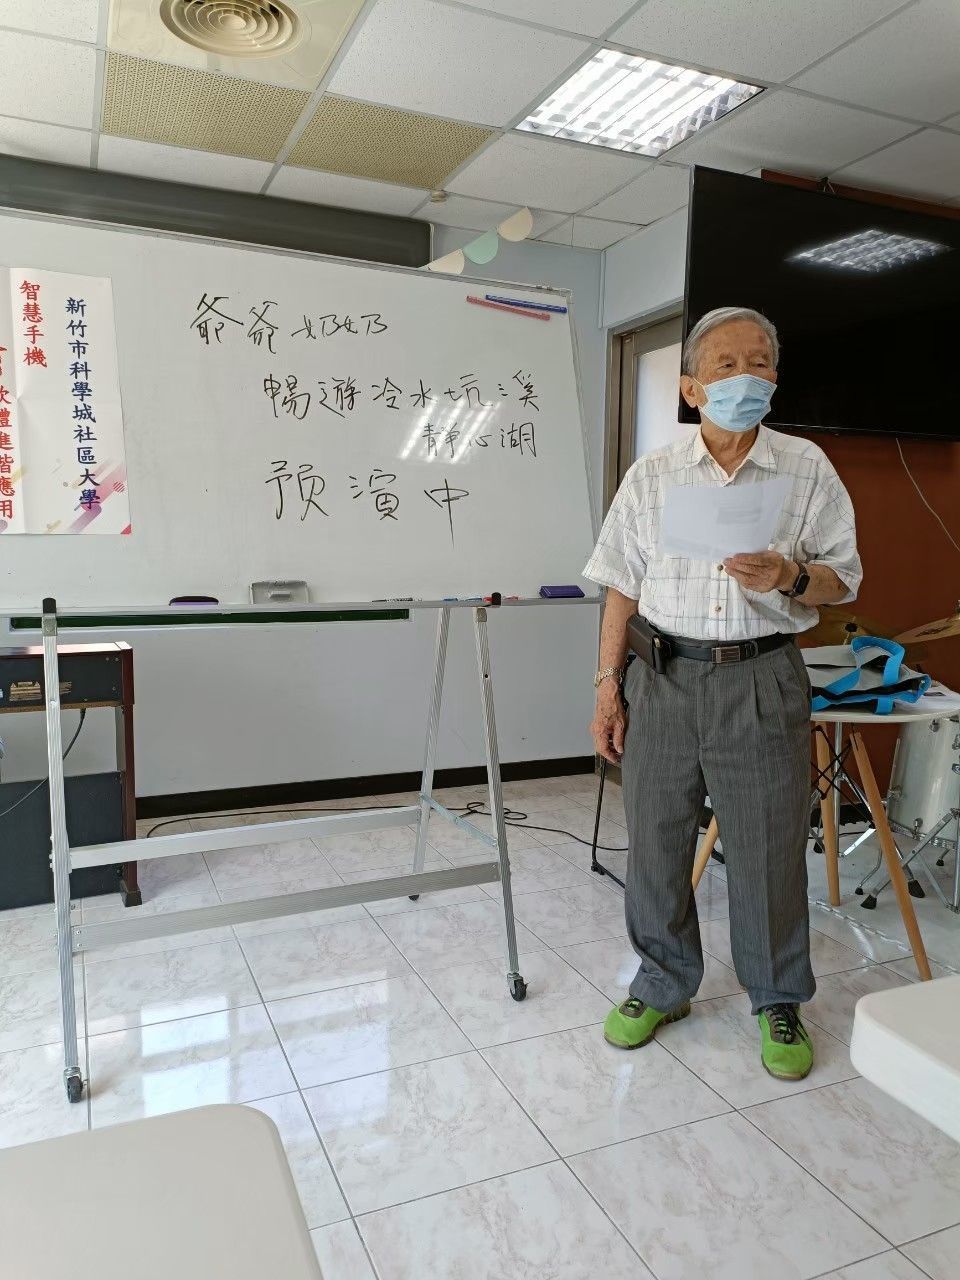 新竹市科學城社區大學
智慧手機
軟體進階應用
爺爺奶奶
暢遊冷水坑溪
靜心湖
預演中